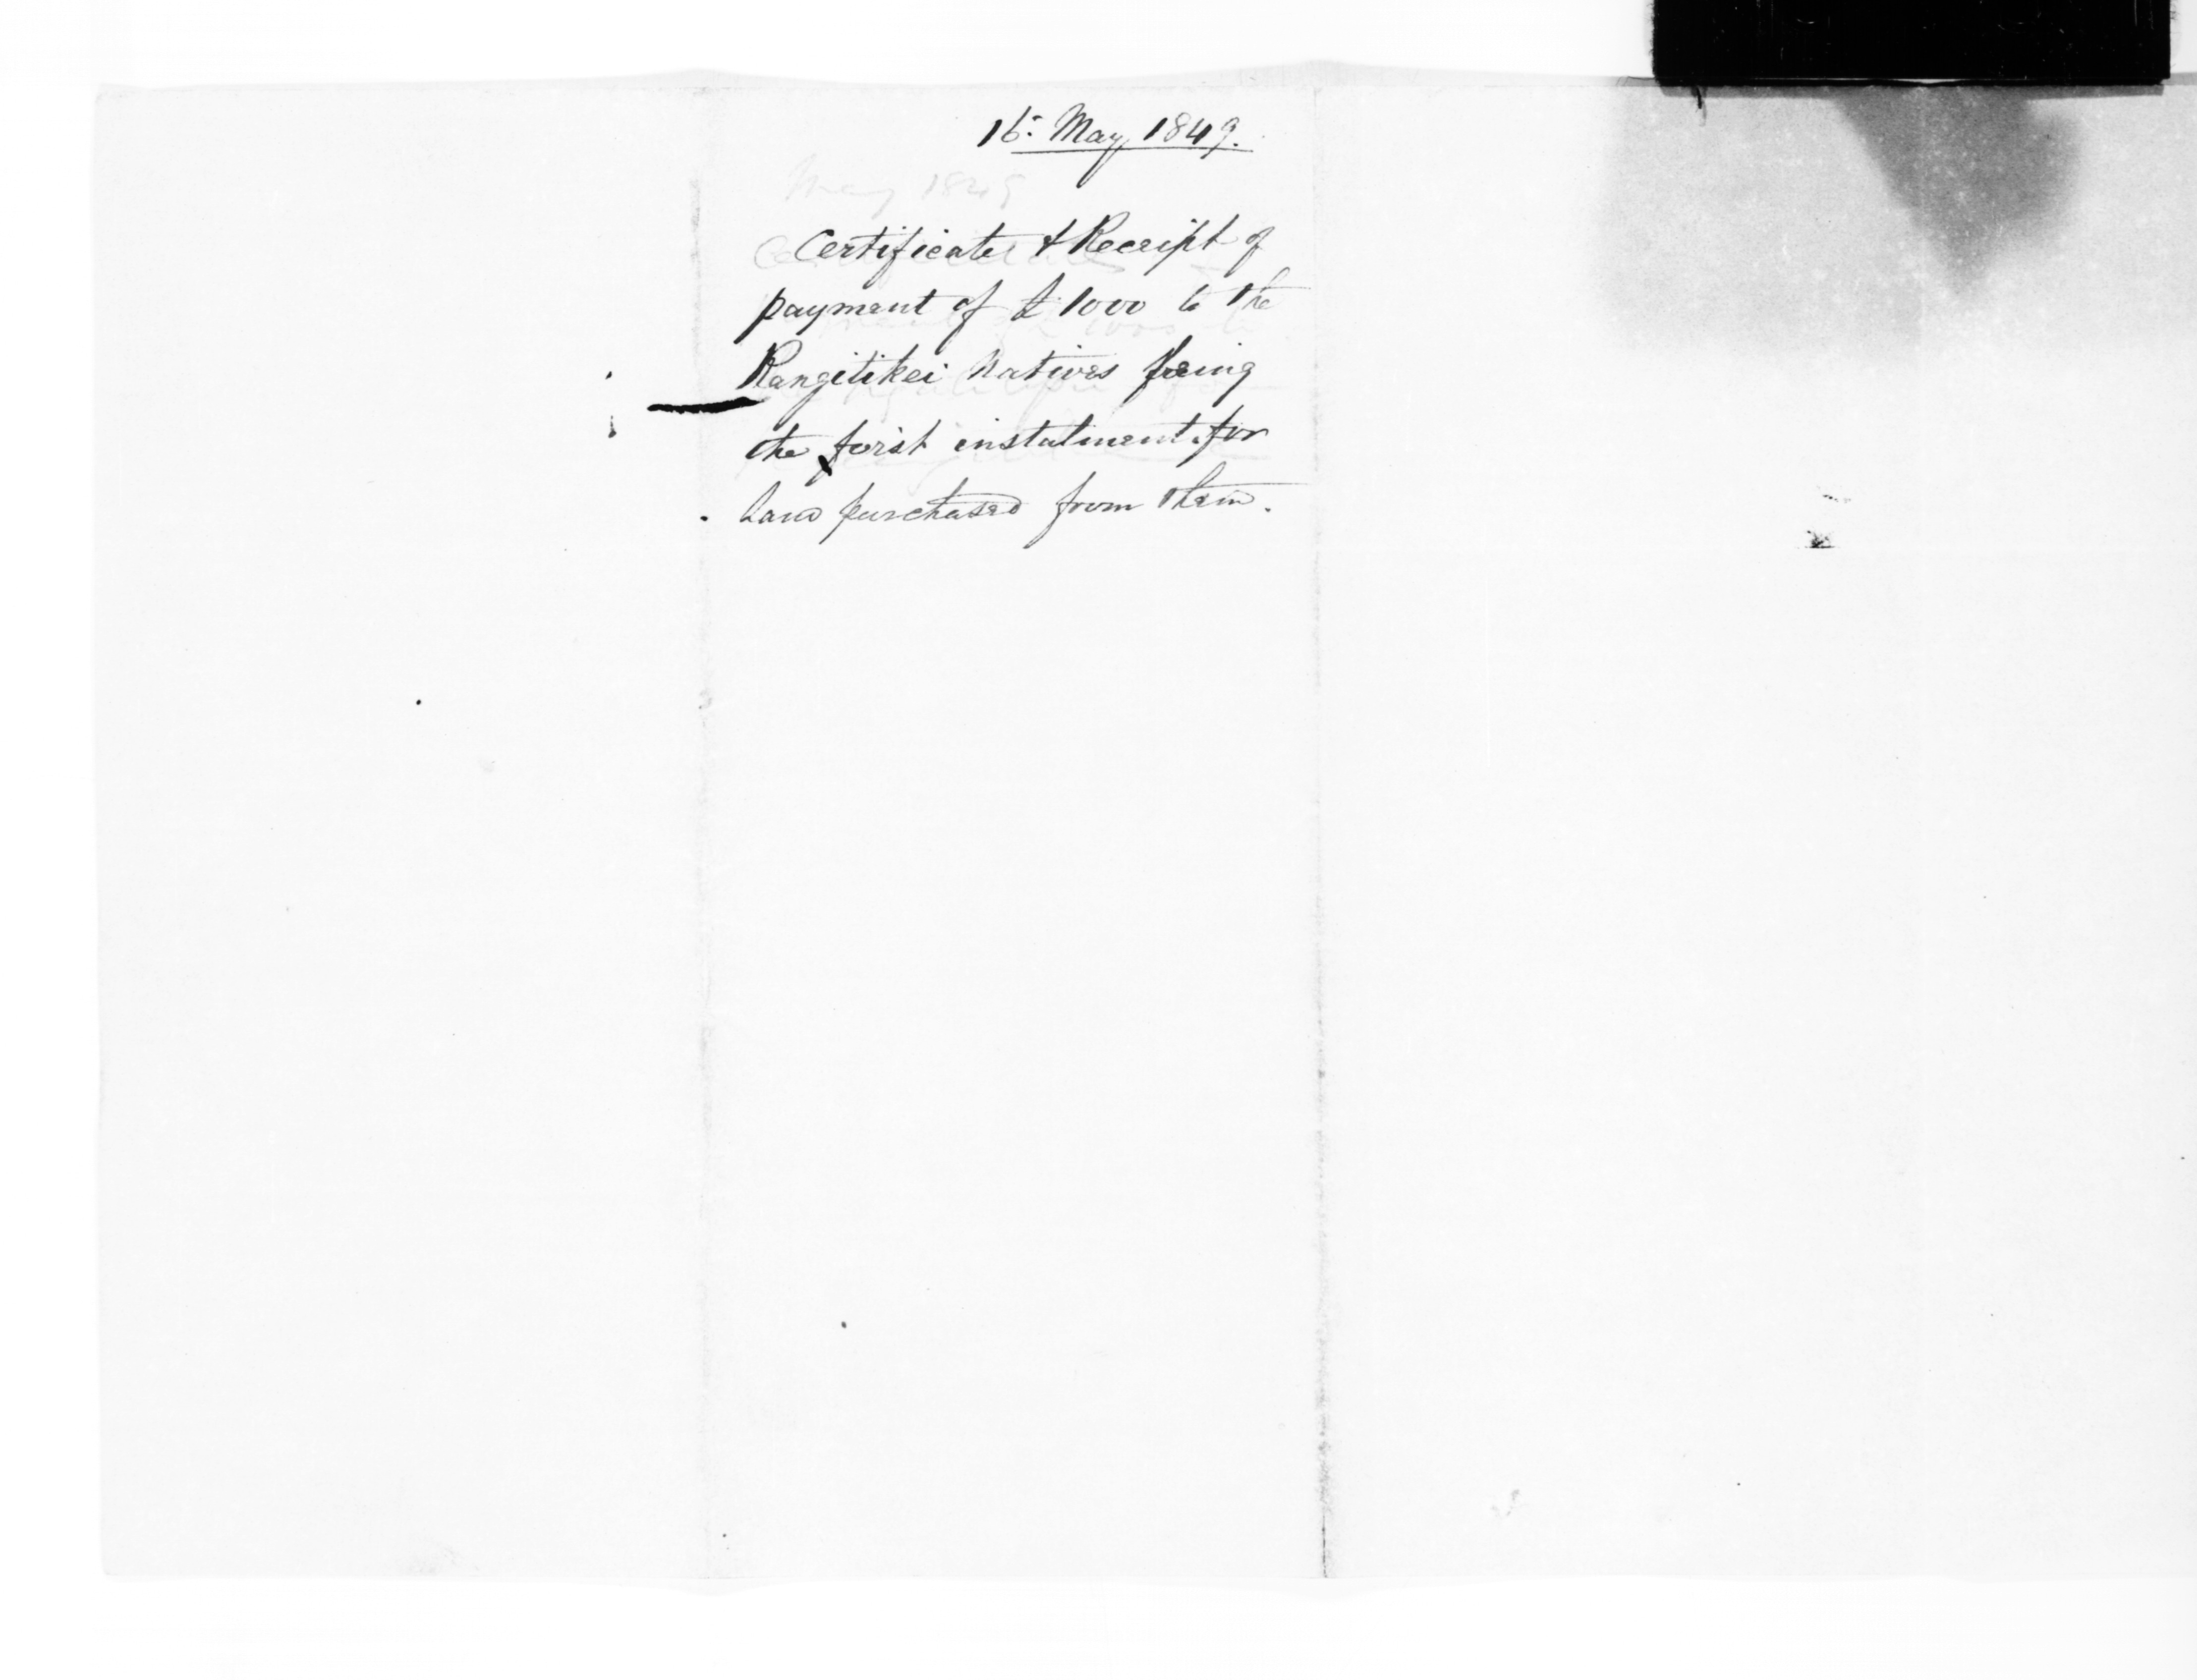 16: May, 1849.
May 1849
Certificate & Receipt of
payment of £1000 to the
Rangitikei Natives being
the first instalment for
land purchased from them.